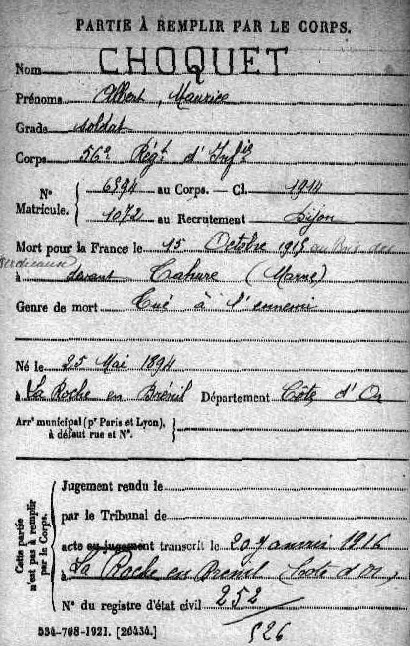 PARTIE À REMPLIR PAR LE CORPS.
Nom CHOQUET
Prénoms Albert, Maurice
Grade soldat
Corps 56e Régt d'Infie
N° Matricule. { 6594 au Corps. — Cl. 1914
1072 au Recrutement Dijon
Mort pour la France le 15 Octobre 1915 au Bois des
Bordeaux
à devant Tahure (Marne)
Genre de mort Tué à l'ennemi
Né le 25 Mai 1894
à La Roche en Brénil Département Côte d'Or
Arrt municipal (pr Paris et Lyon), à défaut rue et N°. }
Cette partie n'est pas à remplir par le Corps.
Jugement rendu le
par le Tribunal de
acte ou jugement transcrit le 20 Janvier 1916
à La Roche en Brénil (Côte d'Or)
N° du registre d'état civil 252
534-708-1921. [26434.] 526